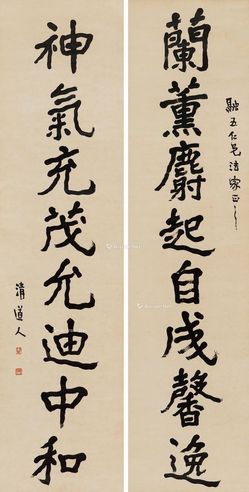 融五仁兄法家正之
蘭薰麝起自成馨逸
神氣充茂允迪中和
清道人